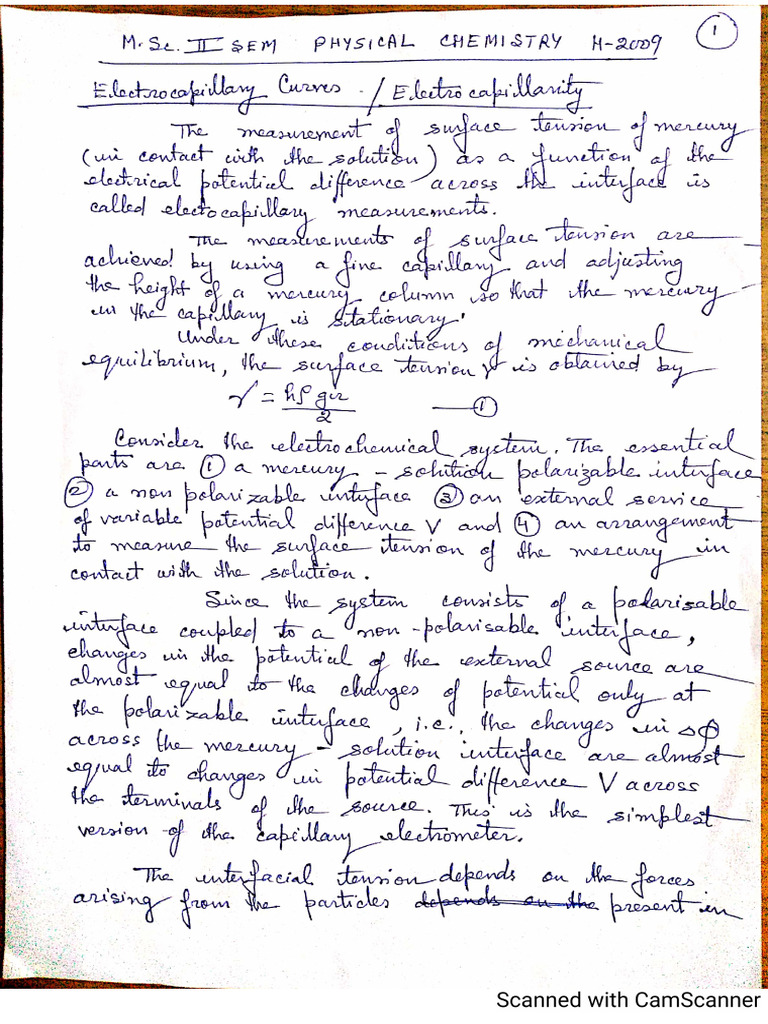 1
M.Sc. II SEM PHYSICAL CHEMISTRY H-2009
Electrocapillary Curves. / Electrocapillarity
The measurement of surface tension of mercury
(in contact with the solution) as a function of the
electrical potential difference across the interface is
called electocapillary measurements.
The measurements of surface tension are
achieved by using a fine capillary and adjusting
the height of a mercury column so that the mercury
in the capillary is stationary.
Under these conditions of mechanical
equilibrium, the surface tension γ is obtained by
γ = hρgr / 2 — ①
Consider the electrochemical system. The essential
parts are ① a mercury - solution polarizable interface
② a non polarizable interface ③ an external service
of variable potential difference V and ④ an arrangement
to measure the surface tension of the mercury in
contact with the solution.
Since the system consists of a polarisable
interface coupled to a non-polarisable interface,
changes in the potential of the external source are
almost equal to the changes of potential only at
the polarizable interface, i.e., the changes in Δϕ
across the mercury - solution interface are almost
equal to changes in potential difference V across
the terminals of the source. This is the simplest
version of the capillary electrometer.
The interfacial tension depends on the forces
arising from the particles depends on the present in
Scanned with CamScanner